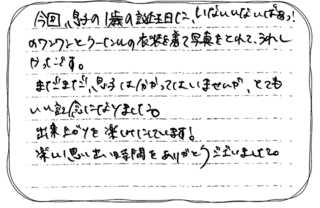 今回、息子の1歳の誕生日に、いないいないばぁっ!
のワンワンとうーたんの衣装を着て写真をとれて、うれし
かったです。
まだまだ、息子は分かってはいませんが、とても
いい記念になりました。
出来上がりを楽しみにしています!
楽しい思い出いの時間をありがとうございました。